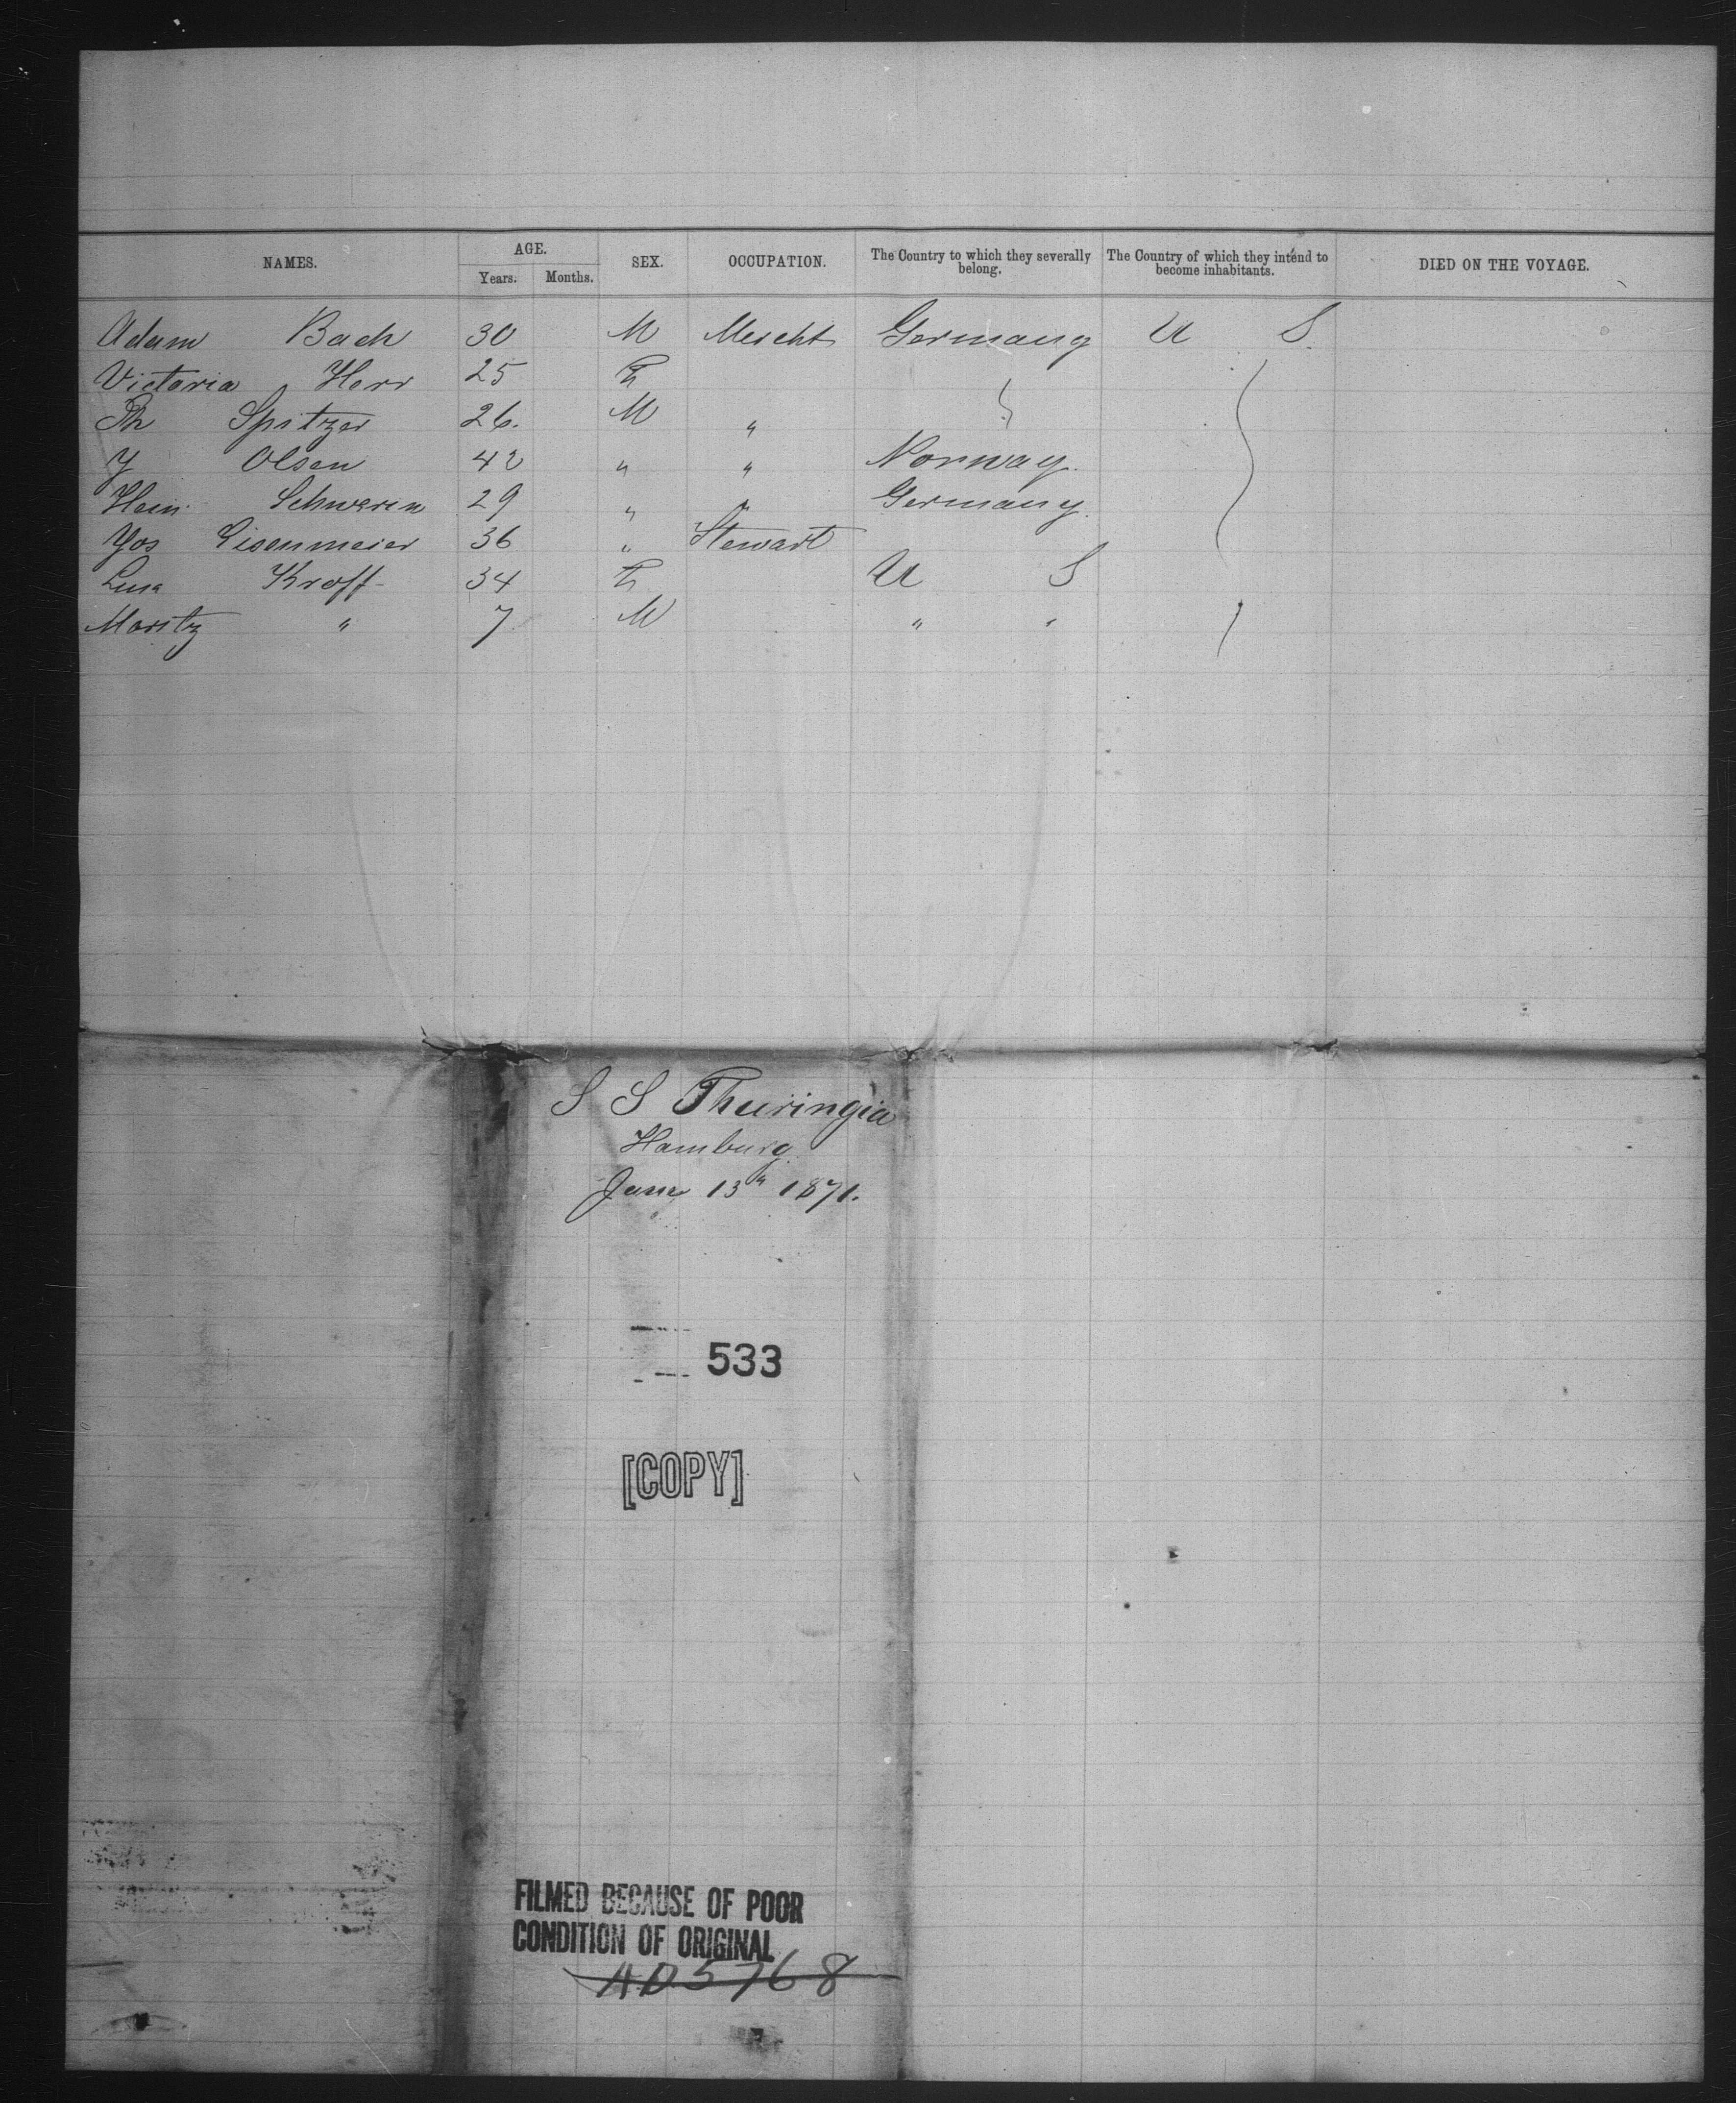 NAMES. AGE. SEX. OCCUPATION. The Country to which they severally belong. The Country of which they intend to become inhabitants. DIED ON THE VOYAGE.
Years. Months.
Adam Bach 30 M Mercht Germany U S.
Victoria Herr 25 F
Th Spitzer 26. M "
J Olsen 42 " " Norway.
Hein Schwerin 29 " " Germany.
Jos Eisenmeier 36 " Stewart
Lina Kroff 34 F U S
Moritz " 7 M " "
S S Thuringia
Hamburg
June 13th 1871.
533
[COPY]
FILMED BECAUSE OF POOR
CONDITION OF ORIGINAL
AD5768